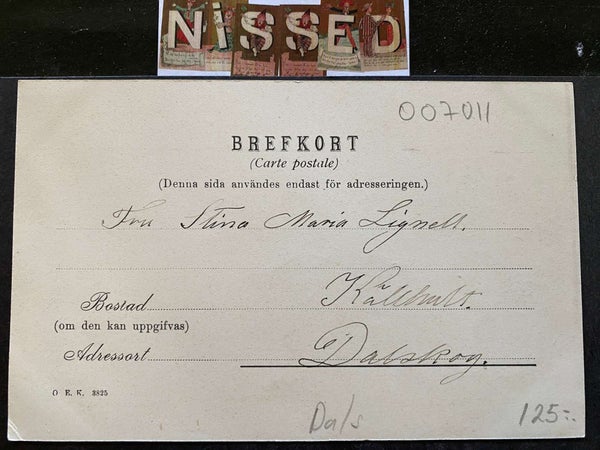 NiSSED
007011
BREFKORT
(Carte postale)
(Denna sida användes endast för adresseringen.)
Fru Stina Maria Lignell.
Bostad Kållhult.
(om den kan uppgifvas)
Adressort Dalskog.
O. E. K. 3825
Dals 125:-